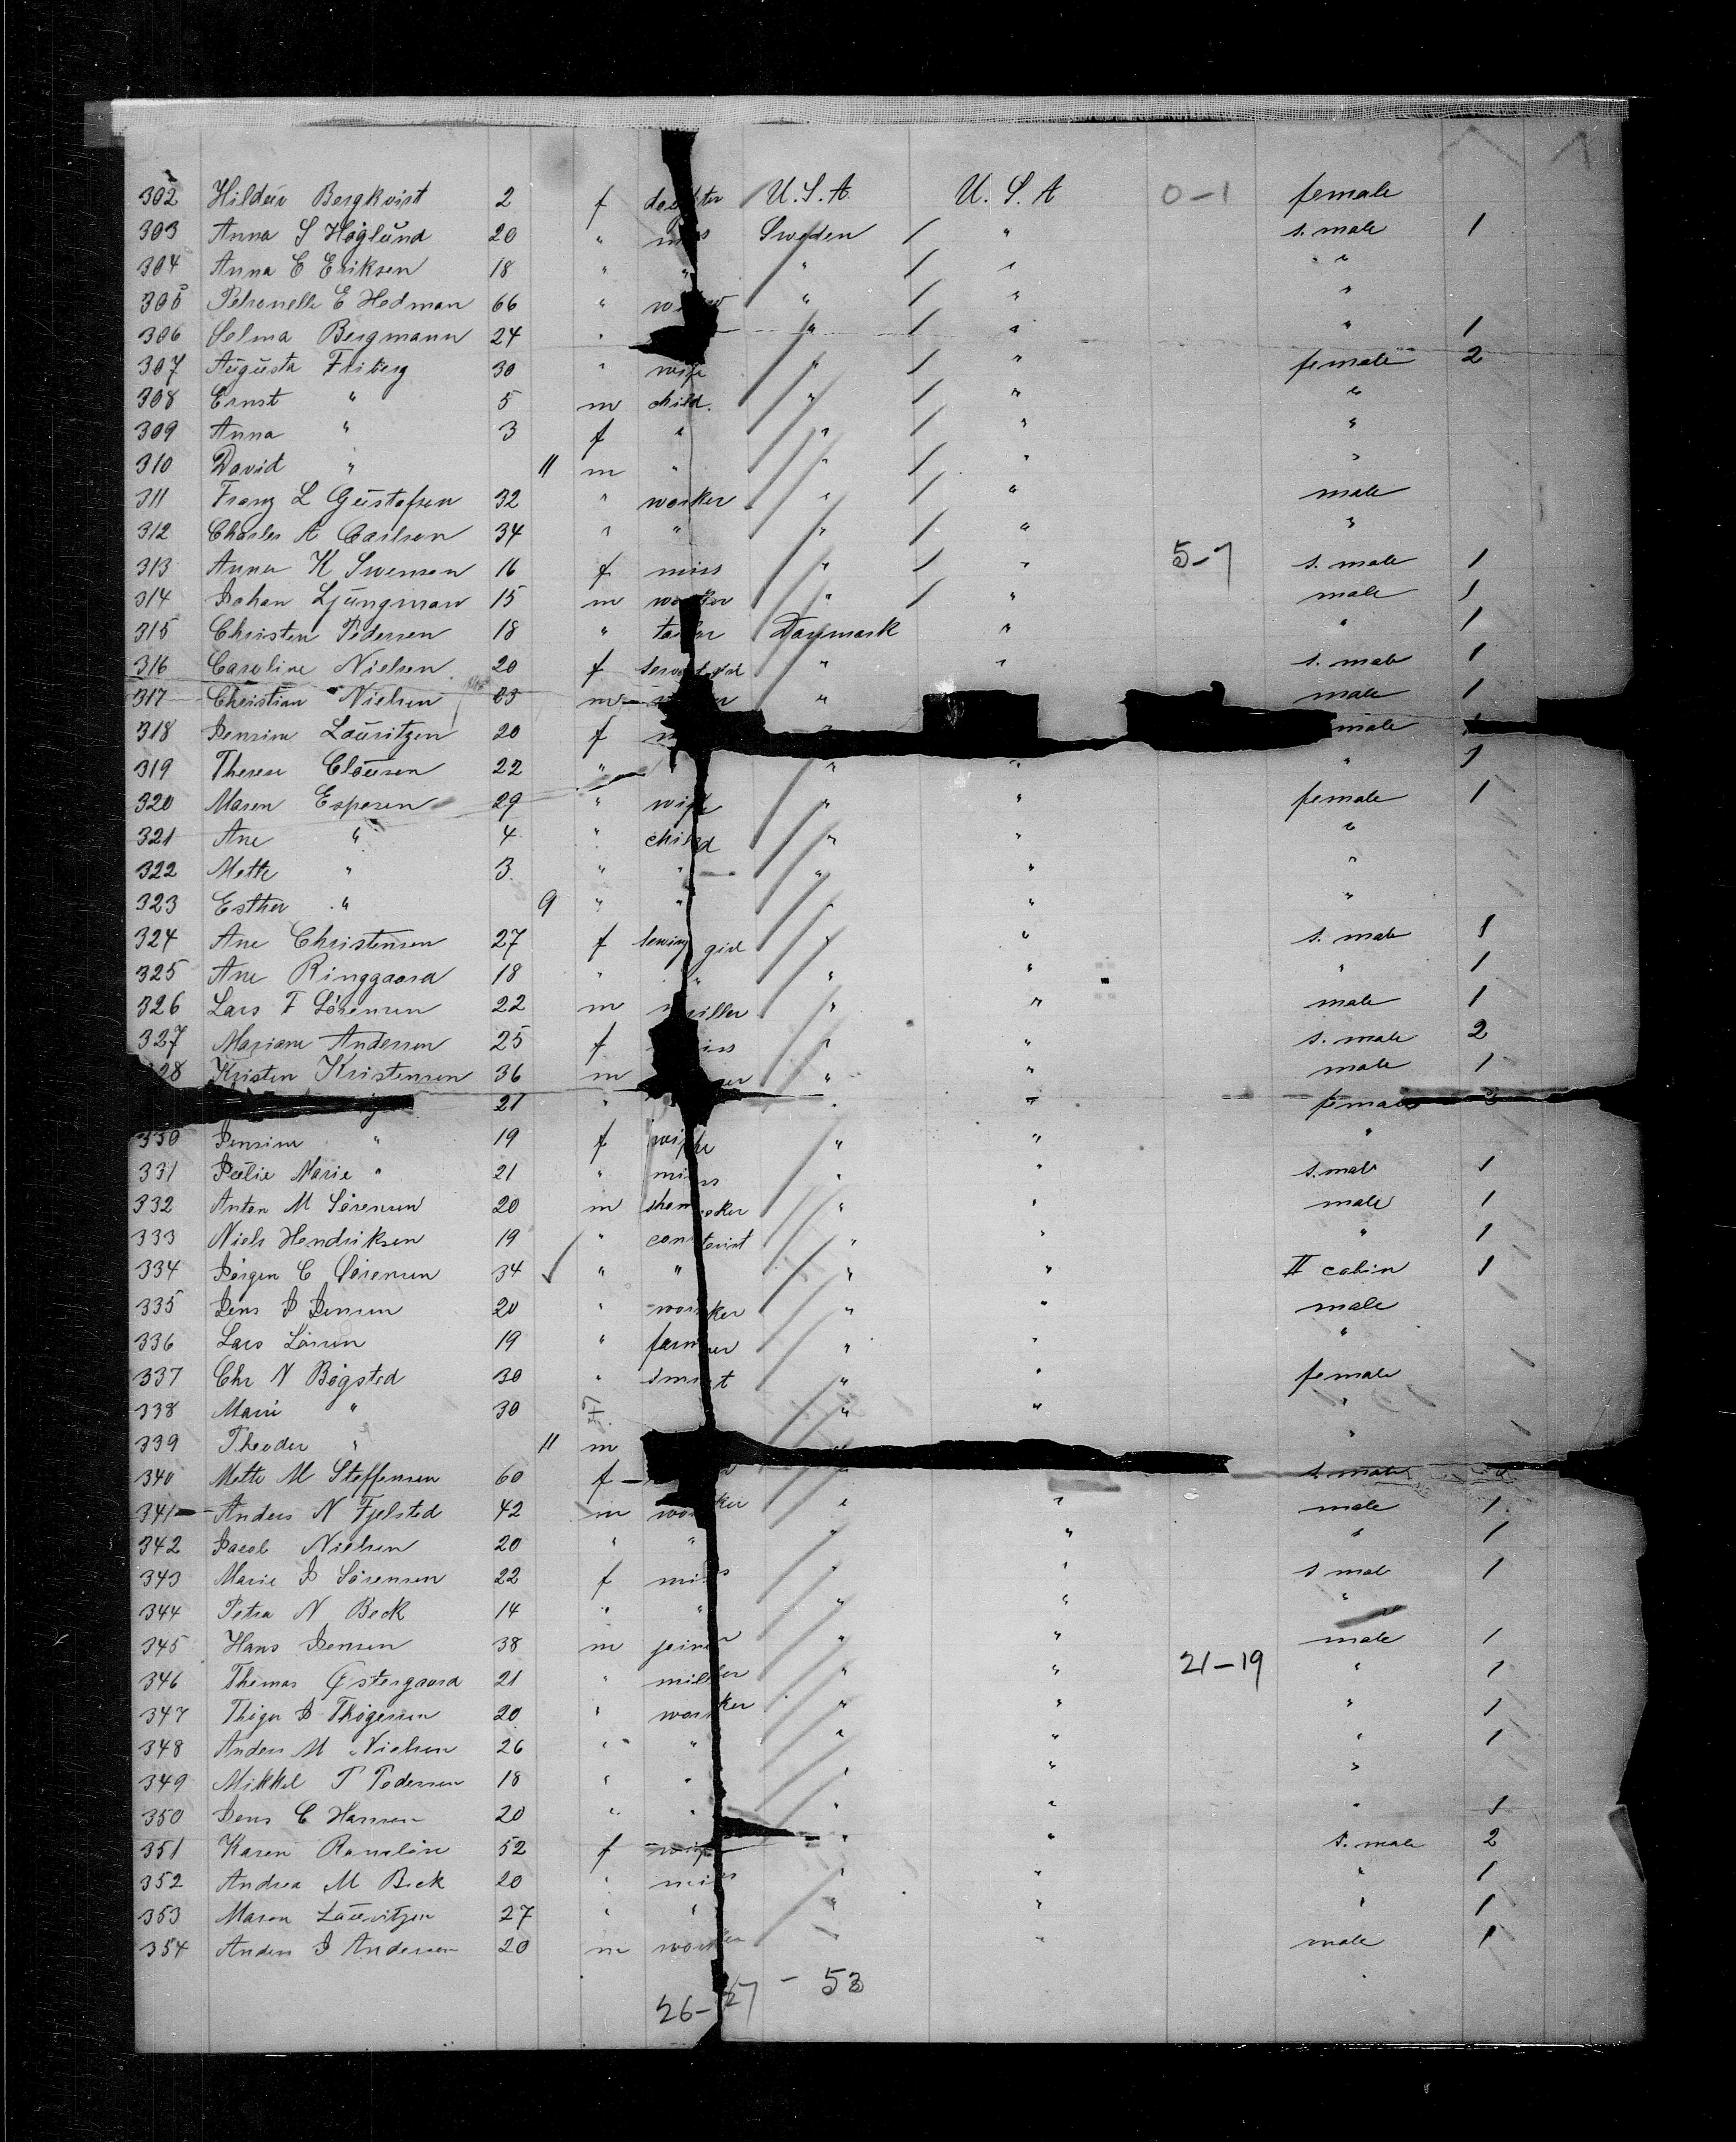 302 Hildur Bergkvist 2 f daughter U.S.A. U.S.A 0-1 female
303 Anna S Høglund 20 " miss Sweden / " s. male 1
304 Anna E Eriksen 18 " " " / " "
305 Petronelle E Hedman 66 " widow " / " "
306 Selma Bergmann 24 " " / " " 1
307 Augusta Friberg 30 " wife " / " female 2
308 Ernst " 5 m child. " / " "
309 Anna " 3 f " " / " "
310 David " 11 m " " / " "
311 Franz L Gustafsen 32 " worker " / " male
312 Charles A Carlson 34 " " " / " "
313 Anna K Swensen 16 f miss " / " 5-7 s. male 1
314 Johan Ljungman 15 m worker " / " male 1
315 Christen Pedersen 18 " tailor Danmark " " 1
316 Caroline Nielsen 20 f " " s. male 1
317 Christian Nielsen 23 m " male 1
318 Jensine Lauritzen 20 f male
319 Therese Clausen 22 " " " " 1
320 Maren Espersen 29 " wife " " female 1
321 Ane " 4 " child " " "
322 Mette " 3 " " " " "
323 Esther " 9 " " " " "
324 Ane Christensen 27 f sewing girl " " s. male 1
325 Ane Ringgaard 18 " " " " " 1
326 Lars F Sørensen 22 m miller " " male 1
327 Mariane Andersen 25 f miss " " s. male 2
328 Kristen Kristensen 36 m " " male 1
21 " " " female
330 Jensine " 19 f wife " " "
331 Julie Marie " 21 " miss " " s. male 1
332 Anton M Sørensen 20 m shomaker " " male 1
333 Niels Hendriksen 19 " " " " 1
334 Jørgen C Sørensen 34 " " " " II cabin 1
335 Jens J Jensen 20 " worker " " male
336 Lars Larsen 19 " farmer " " "
337 Chr N Bøgsted 30 " " " female
338 Marie " 30 F. " " "
339 Theodor " 11 m "
340 Mette M Steffensen 60 f s. male
341 Anders N Fjelsted 42 m worker " " male 1
342 Jacob Nielsen 20 " " " " " 1
343 Marie J Sørensen 22 f miss " " s male 1
344 Petra N Beck 14 " " " " "
345 Hans Jensen 38 m joiner " " male 1
346 Thomas Østergaard 21 " miller " " 21-19 " 1
347 Thøger J Thøgersen 20 " worker " " " 1
348 Anders M Nielsen 26 " " " " " 1
349 Mikkel P Pedersen 18 " " " " "
350 Jens C Hansen 20 " " " " " 1
351 Karen 52 f wife " " s. male 2
352 Andrea M Beck 20 " miss " " " 1
353 Maren Lauritzen 27 " " " " " 1
354 Anders J Andersen 20 m worker " " male 1
26-27 - 53